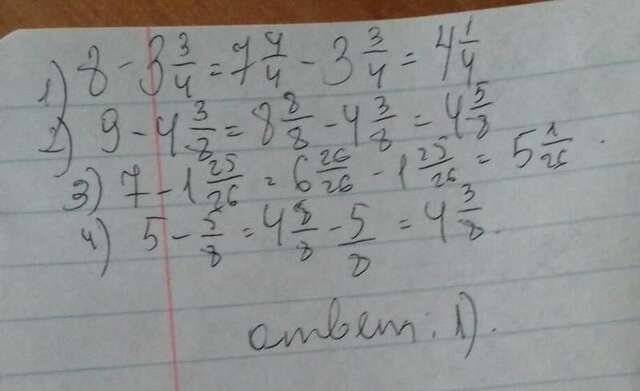 1) 8 - 3 3/4 = 7 4/4 - 3 3/4 = 4 1/4
2) 9 - 4 3/8 = 8 8/8 - 4 3/8 = 4 5/8
3) 7 - 1 25/26 = 6 26/26 - 1 25/26 = 5 1/26.
4) 5 - 5/8 = 4 8/8 - 5/8 = 4 3/8.
ответ: 1).